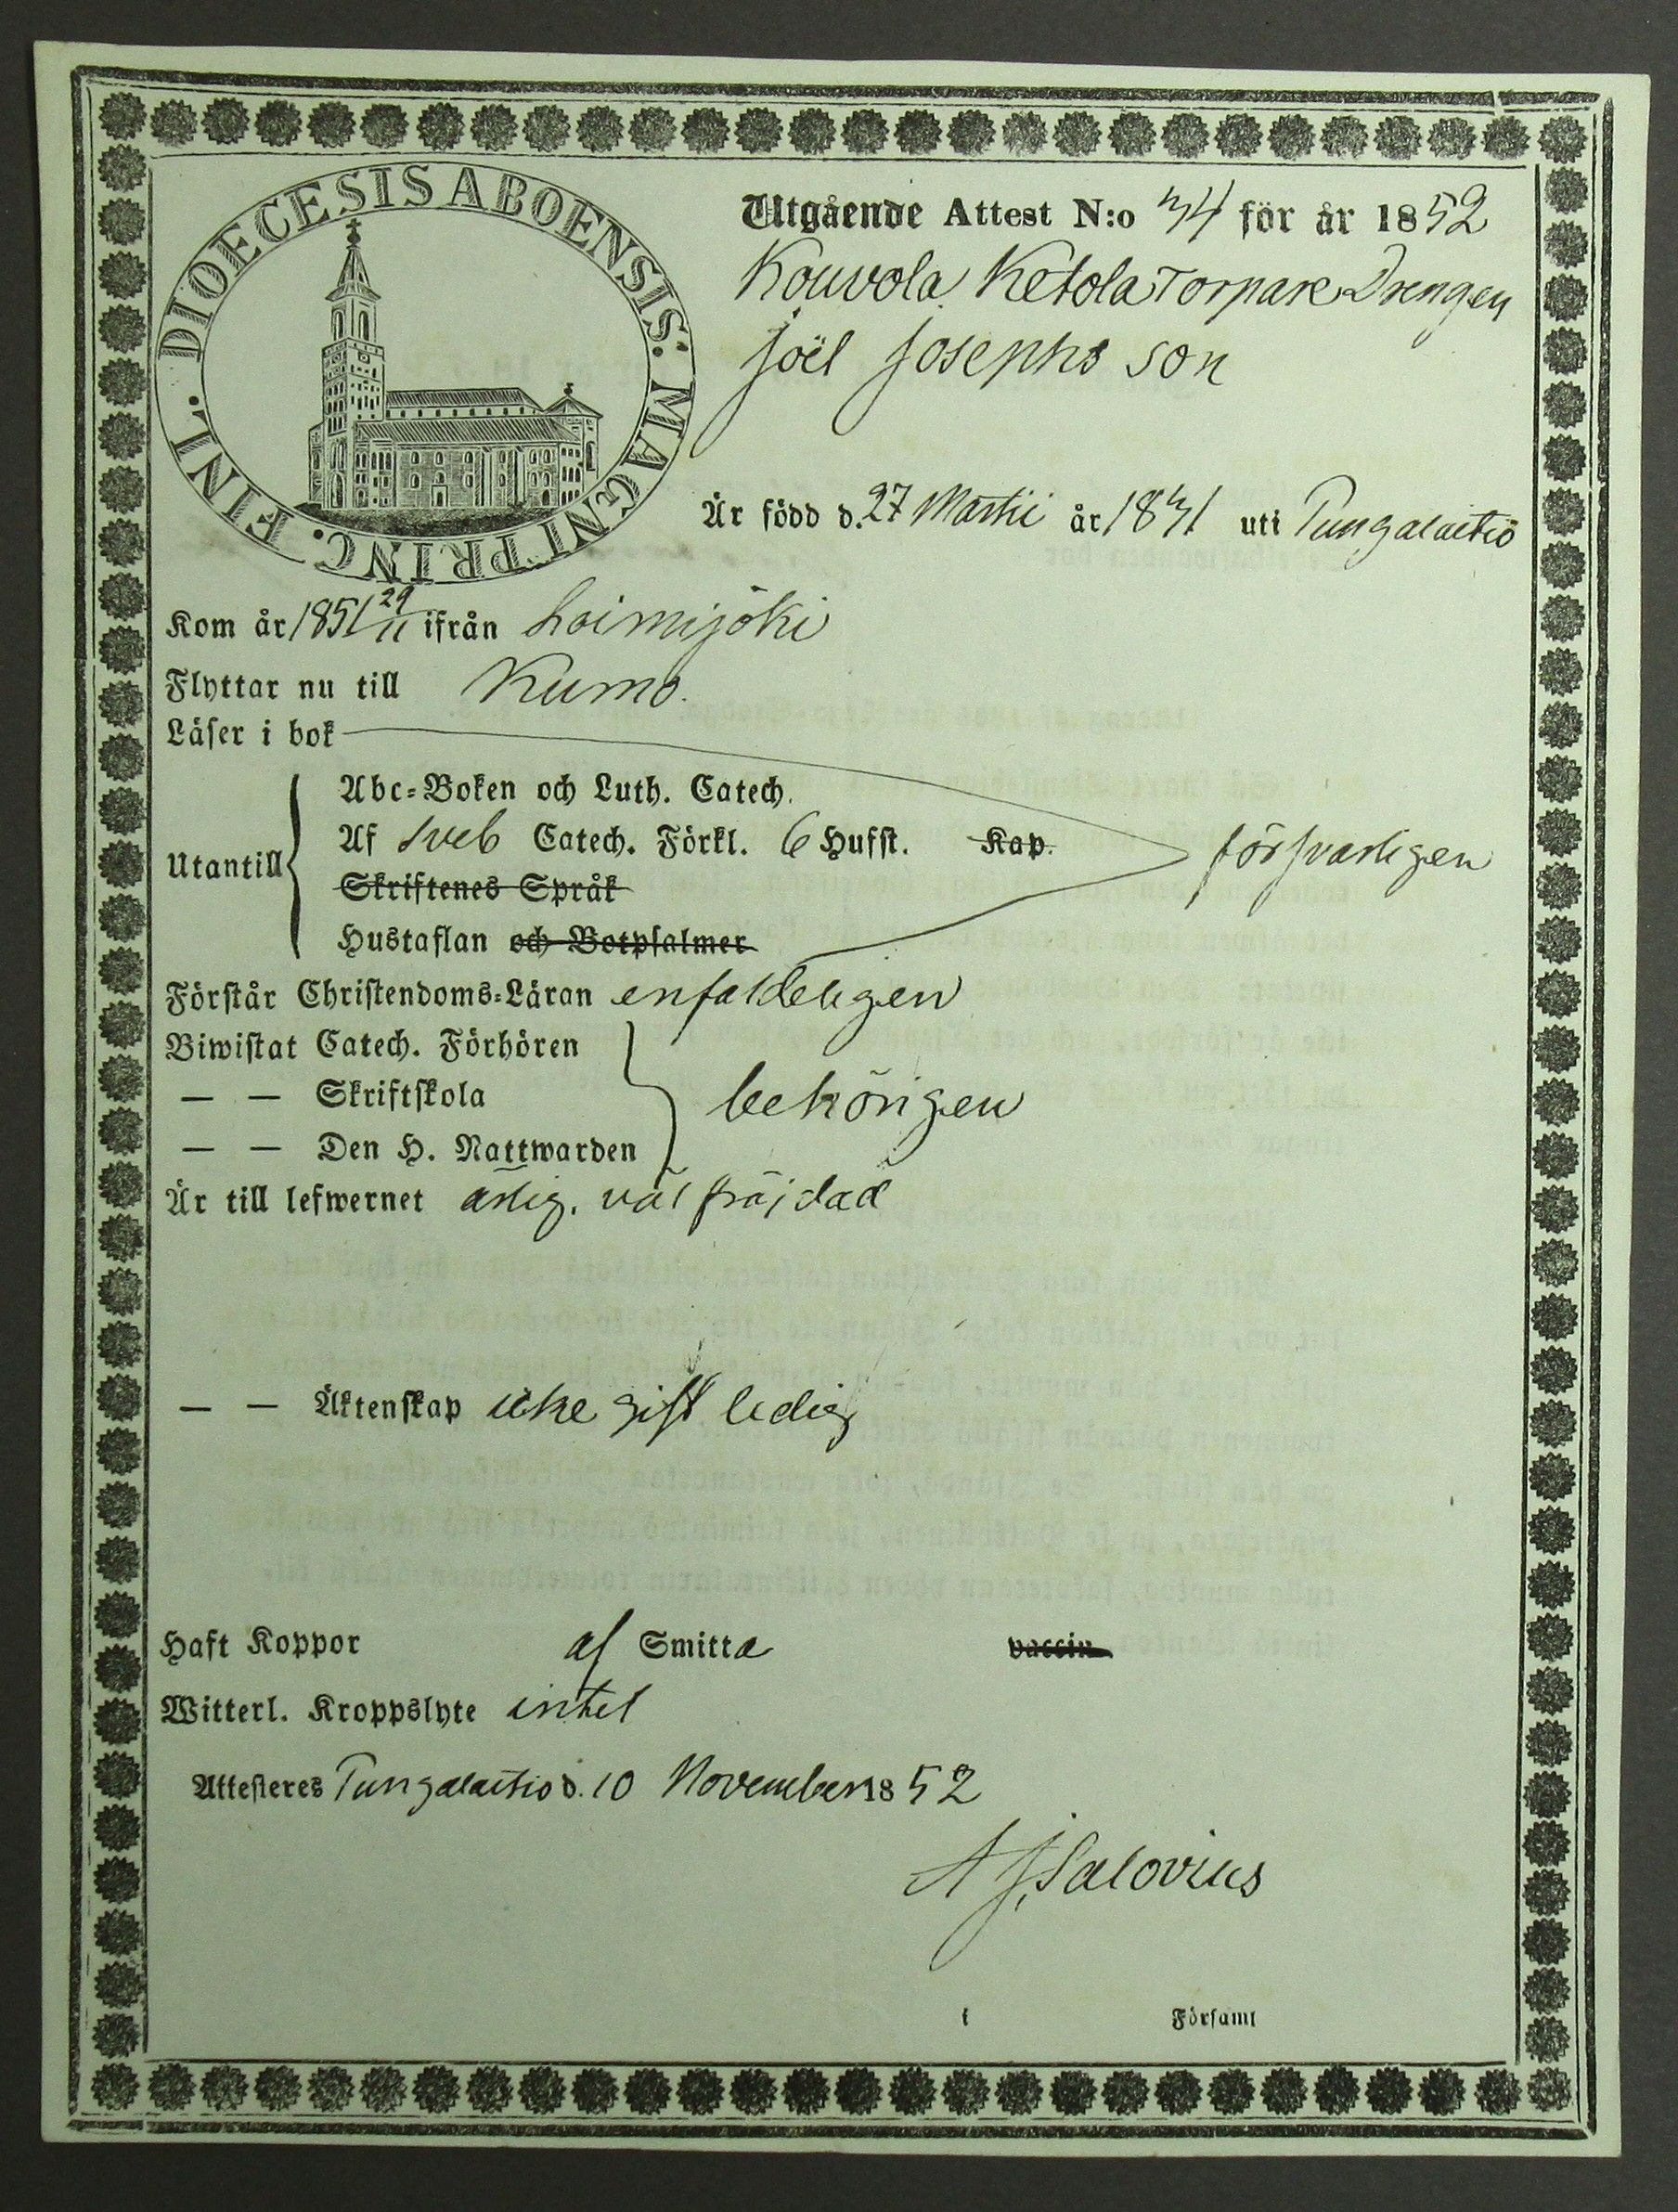 DIOECESIS ABOENSIS. MAGNI PRINC. FINL.
Utgående Attest N:o 34 för år 1852
Kouvola Ketola Torpare Drengen
Joël Josephs son
Är född d. 27 Martii år 1831 uti Pungalaitio
Kom år 1851 29/11 ifrån Loimijoki
Flyttar nu till Kumo.
Läser i bok
Utantill
Abc-Boken och Luth. Catech.
Af Sveb Catech. Förkl. 6 Hufst. Kap.
försvarligen
Skriftenes Språk
Hustaflan och Botpsalmer
Förstår Christendoms-Läran enfaldeligen
Biwistat Catech. Förhören
— — Skriftskola
behörigen
— — Den H. Nattwarden
Är till lefwernet ärlig. väl fräjdad
— — Äktenskap icke gift ledig
Haft Koppor af Smitta vaccin
Witterl. Kroppslyte intet
Attesteres Pungalaitio d. 10 November 1852
A J Salovius
i Församl